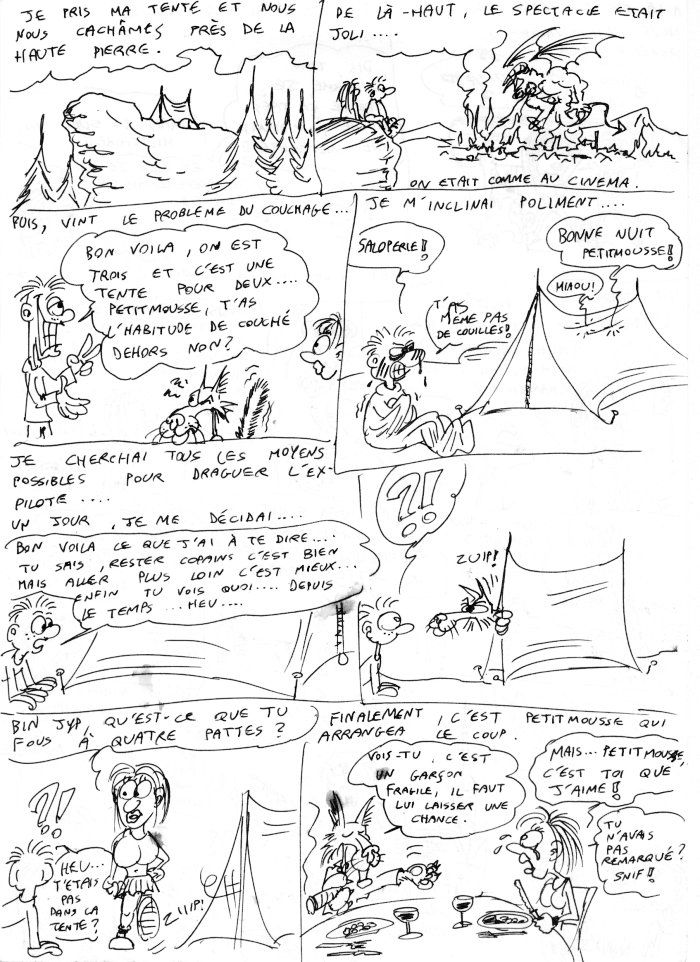 JE PRIS MA TENTE ET NOUS
NOUS CACHÂMES PRÈS DE LA
HAUTE PIERRE.
DE LÀ-HAUT, LE SPECTACLE ETAIT
JOLI....
ON ETAIT COMME AU CINEMA.
PUIS, VINT LE PROBLEME DU COUCHAGE...
BON VOILA, ON EST
TROIS ET C'EST UNE
TENTE POUR DEUX....
PETITMOUSSE, T'AS
L'HABITUDE DE COUCHÉ
DEHORS NON?
JE M'INCLINAI POLIMENT....
SALOPERIE!!
BONNE NUIT
PETITMOUSSE!!
MIAOU!
T'AS
MÊME PAS
DE COUILLES!
JE CHERCHAI TOUS LES MOYENS
POSSIBLES POUR DRAGUER L'EX-
PILOTE....
UN JOUR, JE ME DÉCIDAI....
BON VOILA CE QUE J'AI À TE DIRE....
TU SAIS, RESTER COPAINS C'EST BIEN
MAIS ALLER PLUS LOIN C'EST MIEUX...
ENFIN TU VOIS QUOI.... DEPUIS
LE TEMPS... HEU....
?!
ZUIP!
BIN JYP, QU'EST-CE QUE TU
FOUS À QUATRE PATTES?
?!
HEU...
T'ETAIS
PAS
DANS LA
TENTE?
ZIIIP!
FINALEMENT, C'EST PETITMOUSSE QUI
ARRANGEA LE COUP.
VOIS-TU, C'EST
UN GARÇON
FRAGILE, IL FAUT
LUI LAISSER UNE
CHANCE.
MAIS... PETITMOUSSE,
C'EST TOI QUE
J'AIME!!
TU
N'AVAIS
PAS
REMARQUÉ?
SNIF!!